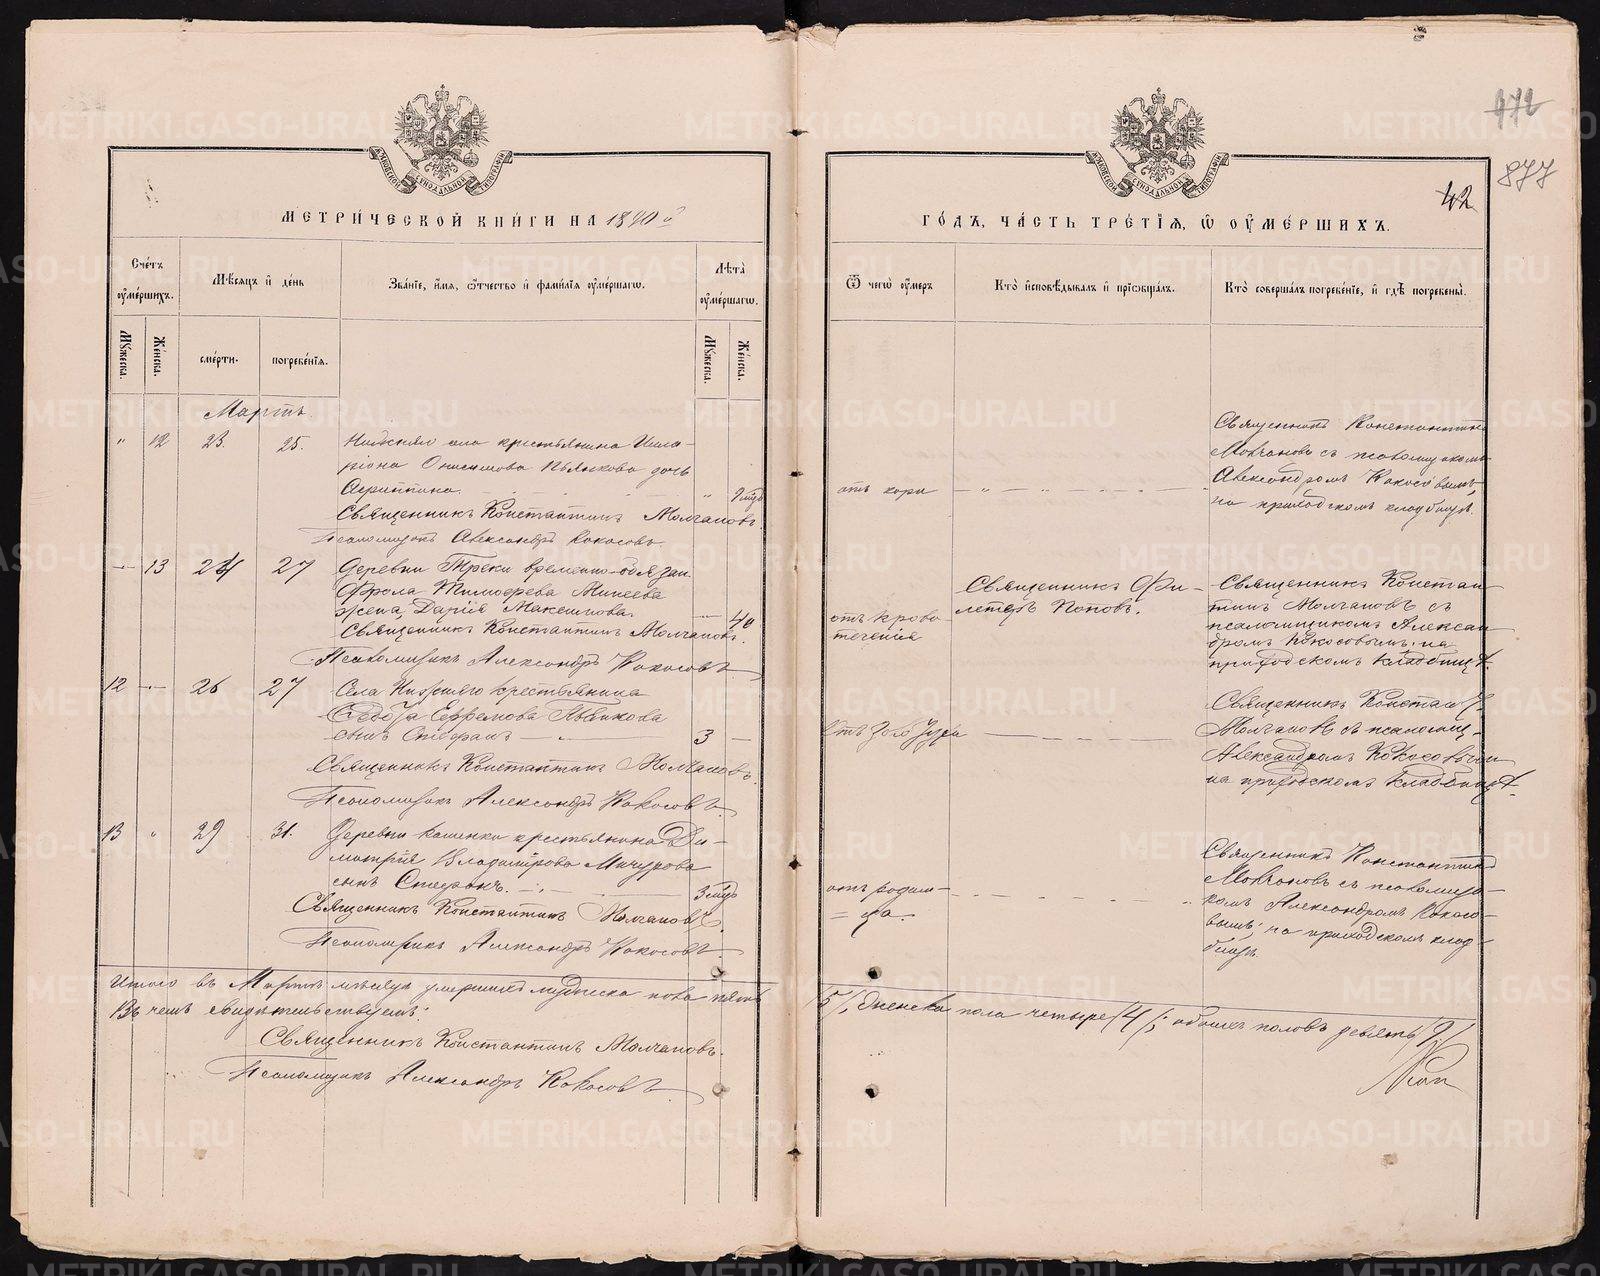 472
877
42
МЕТРИ́ЧЕСКОЙ КНИ́ГИ НА 1890 й
ГО́ДЪ, ЧА́СТЬ ТРЕ́ТІѦ, Ѡ҆ ОУ҆МЕ́РШИХЪ.
Сче́тъ оу҆ме́ршихъ.
Мѣ́сѧцъ и҆ де́нь
Зва́ніе, и҆́мѧ, ѻ҆́тчество и҆ фами́лїѧ оу҆ме́ршагѡ.
Лѣта̀ оу҆ме́ршагѡ.
Ѿ чегѡ̀ оу҆́меръ
Кто̀ и҆сповѣ́дывалъ и҆ прїѡбща́лъ.
Кто̀ соверша́лъ погребе́нїе, и҆ гдѣ̀ погребены̀.
Мꙋ́жеска.
Же́нска.
сме́рти.
погребе́нїѧ.
Мꙋ́жеска.
Же́нска.
Мартъ.
" 12 23. 25.
села крестьянина
ріона Онисимова дочь
"
Священникъ Константинъ Молчановъ.
Псаломщикъ Александръ Кокосовъ
отъ кори
Священникъ Константинъ
Молчановъ съ псаломщикомъ
Александромъ Кокосовымъ,
на приходскомъ кладбищѣ.
13 24 27 Деревни Треки временно-обязан.
Фрола Тимофеева Минеева
жена, Дарія Максимова. 40
Священникъ Константинъ Молчановъ.
Псаломщикъ Александръ Кокосовъ
отъ крово
теченія
Священникъ Фи-
летеръ Поповъ.
Священникъ Констан
тинъ Молчановъ съ
псаломщикомъ Алексан
дромъ Кокосовымъ; на
приходскомъ кладбищѣ.
12 26 27 Села крестьянина
Ѳедота Ефремова
сынъ Стефанъ 3
Священникъ Константинъ Молчановъ.
Псаломщикъ Александръ Кокосовъ
Священникъ Констан
Молчановъ съ псаломщ.
Александромъ Кокосовымъ
на приходскомъ кладбищѣ.
13 " 29 31. Деревни крестьянина Ди-
митрія Владимірова Мичурова
сынъ Стефанъ. 3 мѣс
Священникъ Константинъ Молчановъ.
Псаломщикъ Александръ Кокосовъ.
отъ родим-
= ца.
Священникъ Константинъ
Молчановъ съ псаломщи-
комъ Александромъ Кокосо-
вымъ; на приходскомъ клад-
бищѣ.
Итого въ Мартѣ мѣсяцѣ умершихъ мужеска пола пять
/5/, женска пола четыре /4/; обоихъ половъ девять /9/
Въ чемъ свидѣтельствуемъ:
Священникъ Константинъ Молчановъ.
Псаломщикъ Александръ Кокосовъ
METRIKI.GASO-URAL.RU